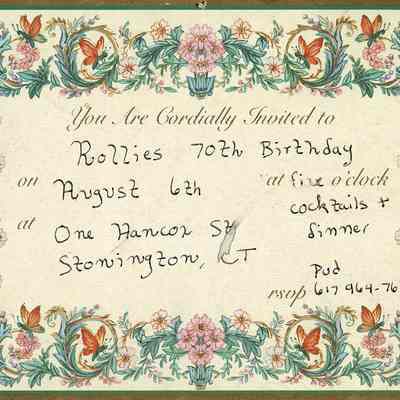 You Are Cordially Invited to
Rollies 70th Birthday
on August 6th at five o'clock
cocktails + dinner
at One Hancox St
Stonington, CT
Pud
rsvp 617 964-76